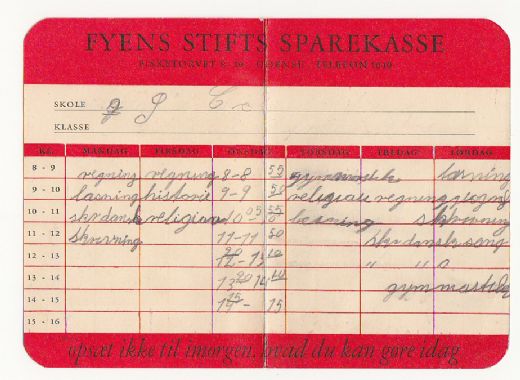 FYENS STIFTS SPAREKASSE
FISKETORVET 8-10 ODENSE TELEFON
SKOLE
KLASSE
KL. MANDAG TIRSDAG ONSDAG TORSDAG FREDAG LØRDAG
8 - 9 regning regning 8-8 50 gymnastik læsning
9 - 10 læsning historie 9-9 50 religion regning
10 - 11 skr dansk religion 10 05 55 læsning skrivning
11 - 12 skrivning 11-11 50 skr dansk sang
12 - 13 " "
13 - 14 gymnastik
14 - 15 15
15 - 16
opsæt ikke til imorgen, hvad du kan gøre idag